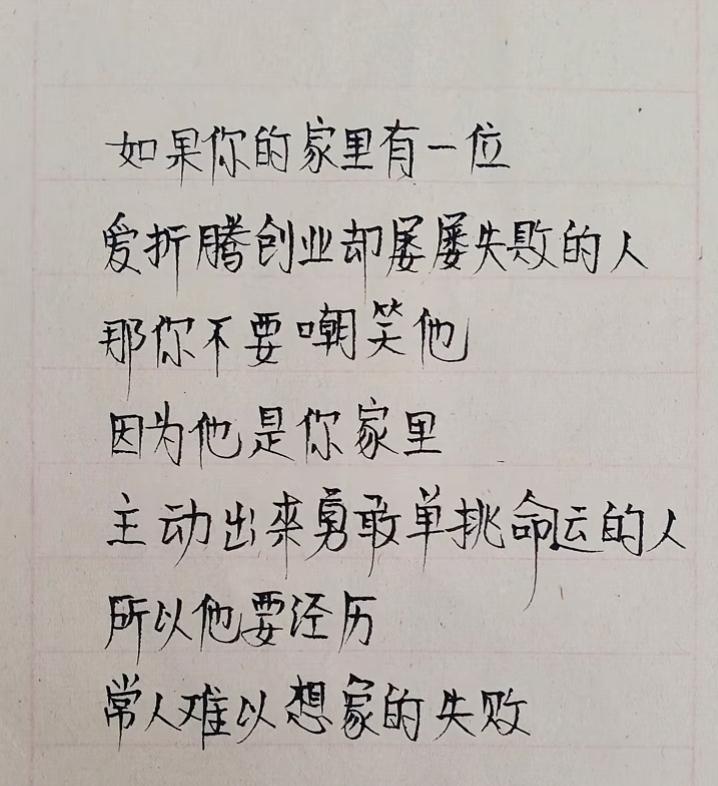 如果你的家里有一位
爱折腾创业却屡屡失败的人
那你不要嘲笑他
因为他是你家里
主动出来勇敢单挑命运的人
所以他要经历
常人难以想象的失败